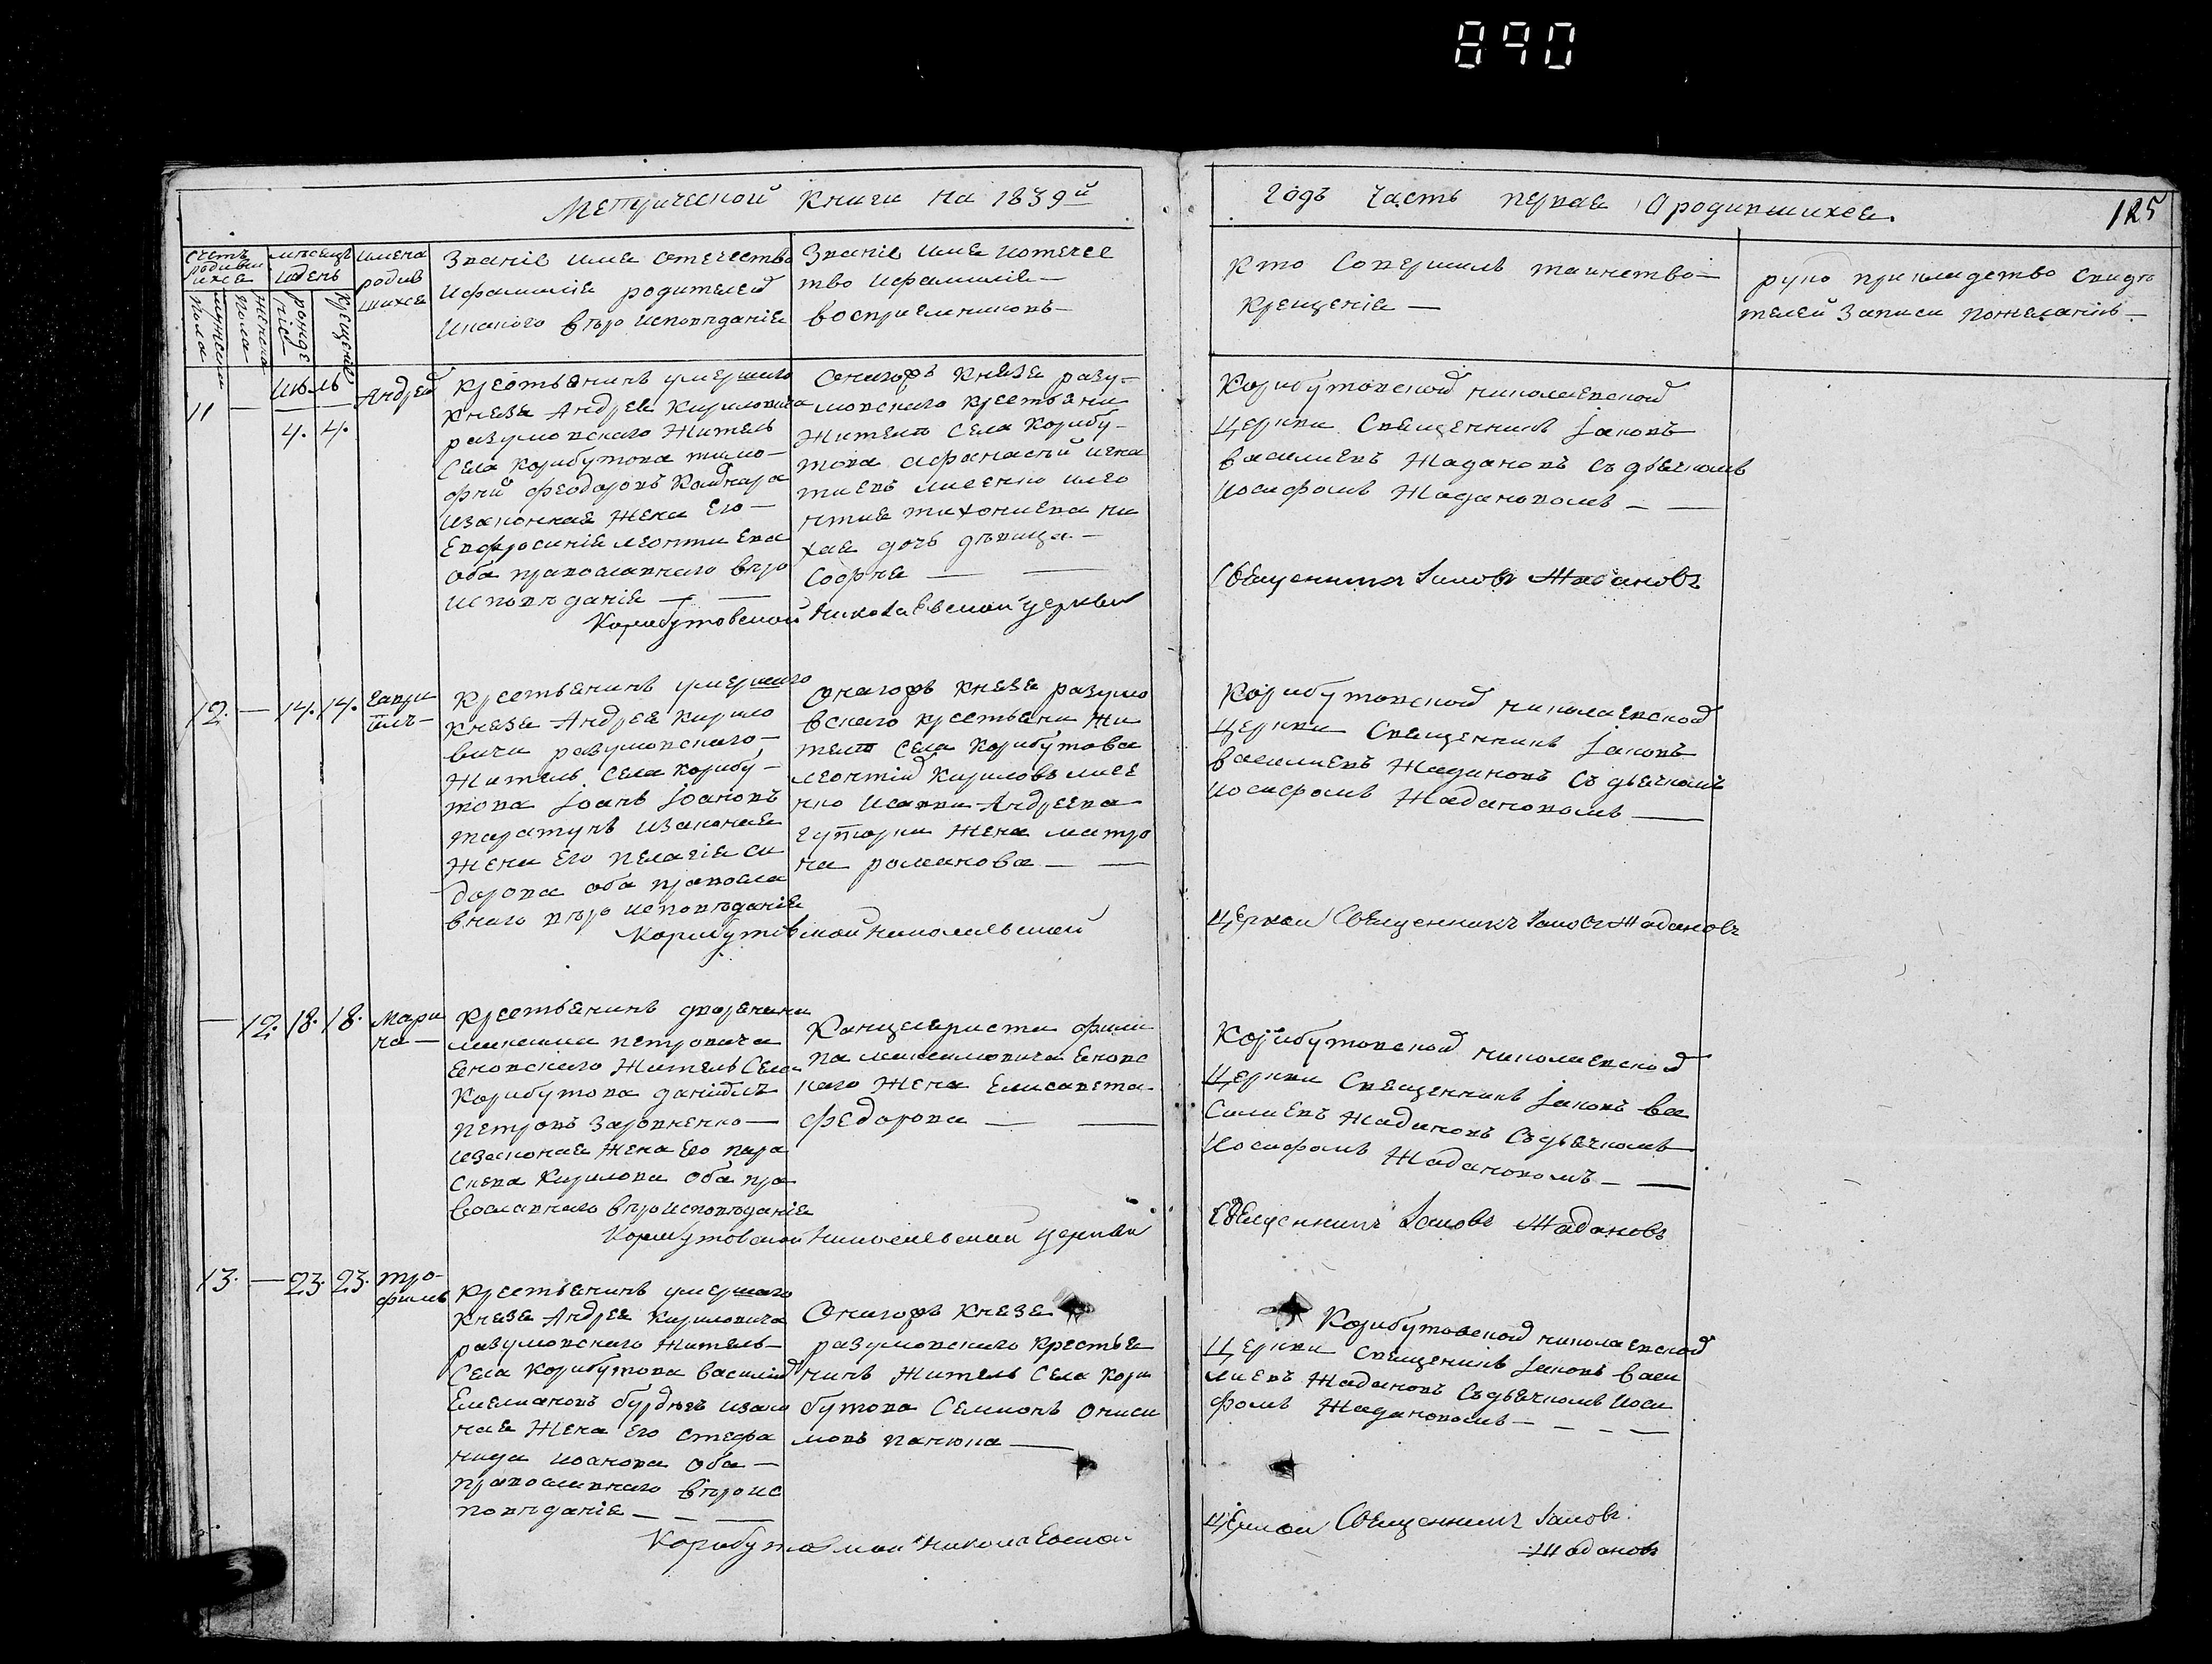 890
Метрической книги на 1839й
годъ часть первая О родившихся.
125
счетъ
родивш
ихся
мужеска
пола
женска
пола
мѣсецъ
идень
рожде
ніе
крещеніе
имена
родив
шихся
Званіе имя отечество
ифамилія родителей
икакого вѣро исповѣданія
Званіе имя иотечес
тво ифамилія —
воспріемниковъ —
Кто Совершилъ таинство —
крещенія —
руко прикладство свидѣ
телей записи пожеланію —
11 — Июль
4. 4.
Андрей
крестьянинъ умершаго
князя Андрея Кириловича
разумовскаго Житель
Села Корибутова тимо-
фей феодоровъ
изаконная жена Его —
Евфросинія леонтиева
оба православнаго вѣро
исповѣданія — —
Онагожъ князя разу-
мовскаго крестьяни
Жители Села Корибу-
това афанасій игна
тиевъ лисенко илео
нтия тихониева ми
хая дочь дѣвица —
Софія — —
Корибутовской николаевской
Церкви Священникъ Іаковъ
василиевъ Жадановъ съ дьячкомъ
иосифомъ Жадановомъ — —
Корибутовской Николаевской церкви
Священникъ Іаковъ Жадановъ
12. — 14. 14.
гаври
илъ —
Крестьянинъ умершаго
князя Андрея кирило
вича разумовскаго —
Житель Села корибу-
това Іоанъ Іоановъ
таратунъ изаконая
жена Его пелагія си
дорова оба правосла
внаго вѣро исповѣданія
Онагожъ князя разумо
вскаго крестьяни жи
тели Села Корибутова
леонтій Кириловъ лисе
нко исавки Андреева
гуторки жена матро
на романова — —
Корибутовской николаевской
Церкви Священникъ Іаковъ
василиевъ Жадановъ съ дьячкомъ
иосифомъ Жадановомъ —
Корибутовской Николаевской
Церкви Священникъ Іаковъ Жадановъ
— 12. 18. 18.
Мари
на —
Крестьянинъ дворянина
максима петровича
яновскаго Житель Села
Корибутова даніилъ
петровъ —
изаконая жена Его пара
скева Кирилова оба пра
вославнаго вѣроисповѣданія
Канцеляриста фили
па максимовича яновс
каго жена Елисавета
федорова — —
Корибутовской николаевской
Церкви Священникъ Іаковъ ва
силиевъ Жадановъ съ дьячкомъ
Иосифомъ Жадановомъ — —
Корибутовской Николаевской церкви
Священникъ Іаковъ Жадановъ
13. — 23. 23.
тро-
фимъ
Крестьянинъ умершаго
князя Андрея Кириловича
разумовскаго житель —
Села Корибутова василій
Емелиановъ изако
ная жена Его стефа
нида иоанова оба —
православнаго вѣроис
повѣданія — — —
Онагожъ князя
разумовскаго крестья
нинъ житель Села Кори
бутова Семионъ Ониси
мовъ —
Корибутовской николаевской
Церкви Священикъ Іаковъ васи
лиевъ Жадановъ съ дьячкомъ Иоси
фомъ Жадановомъ — — —
Корибутовской Николаевской
Церкви Священникъ Іаковъ
Жадановъ